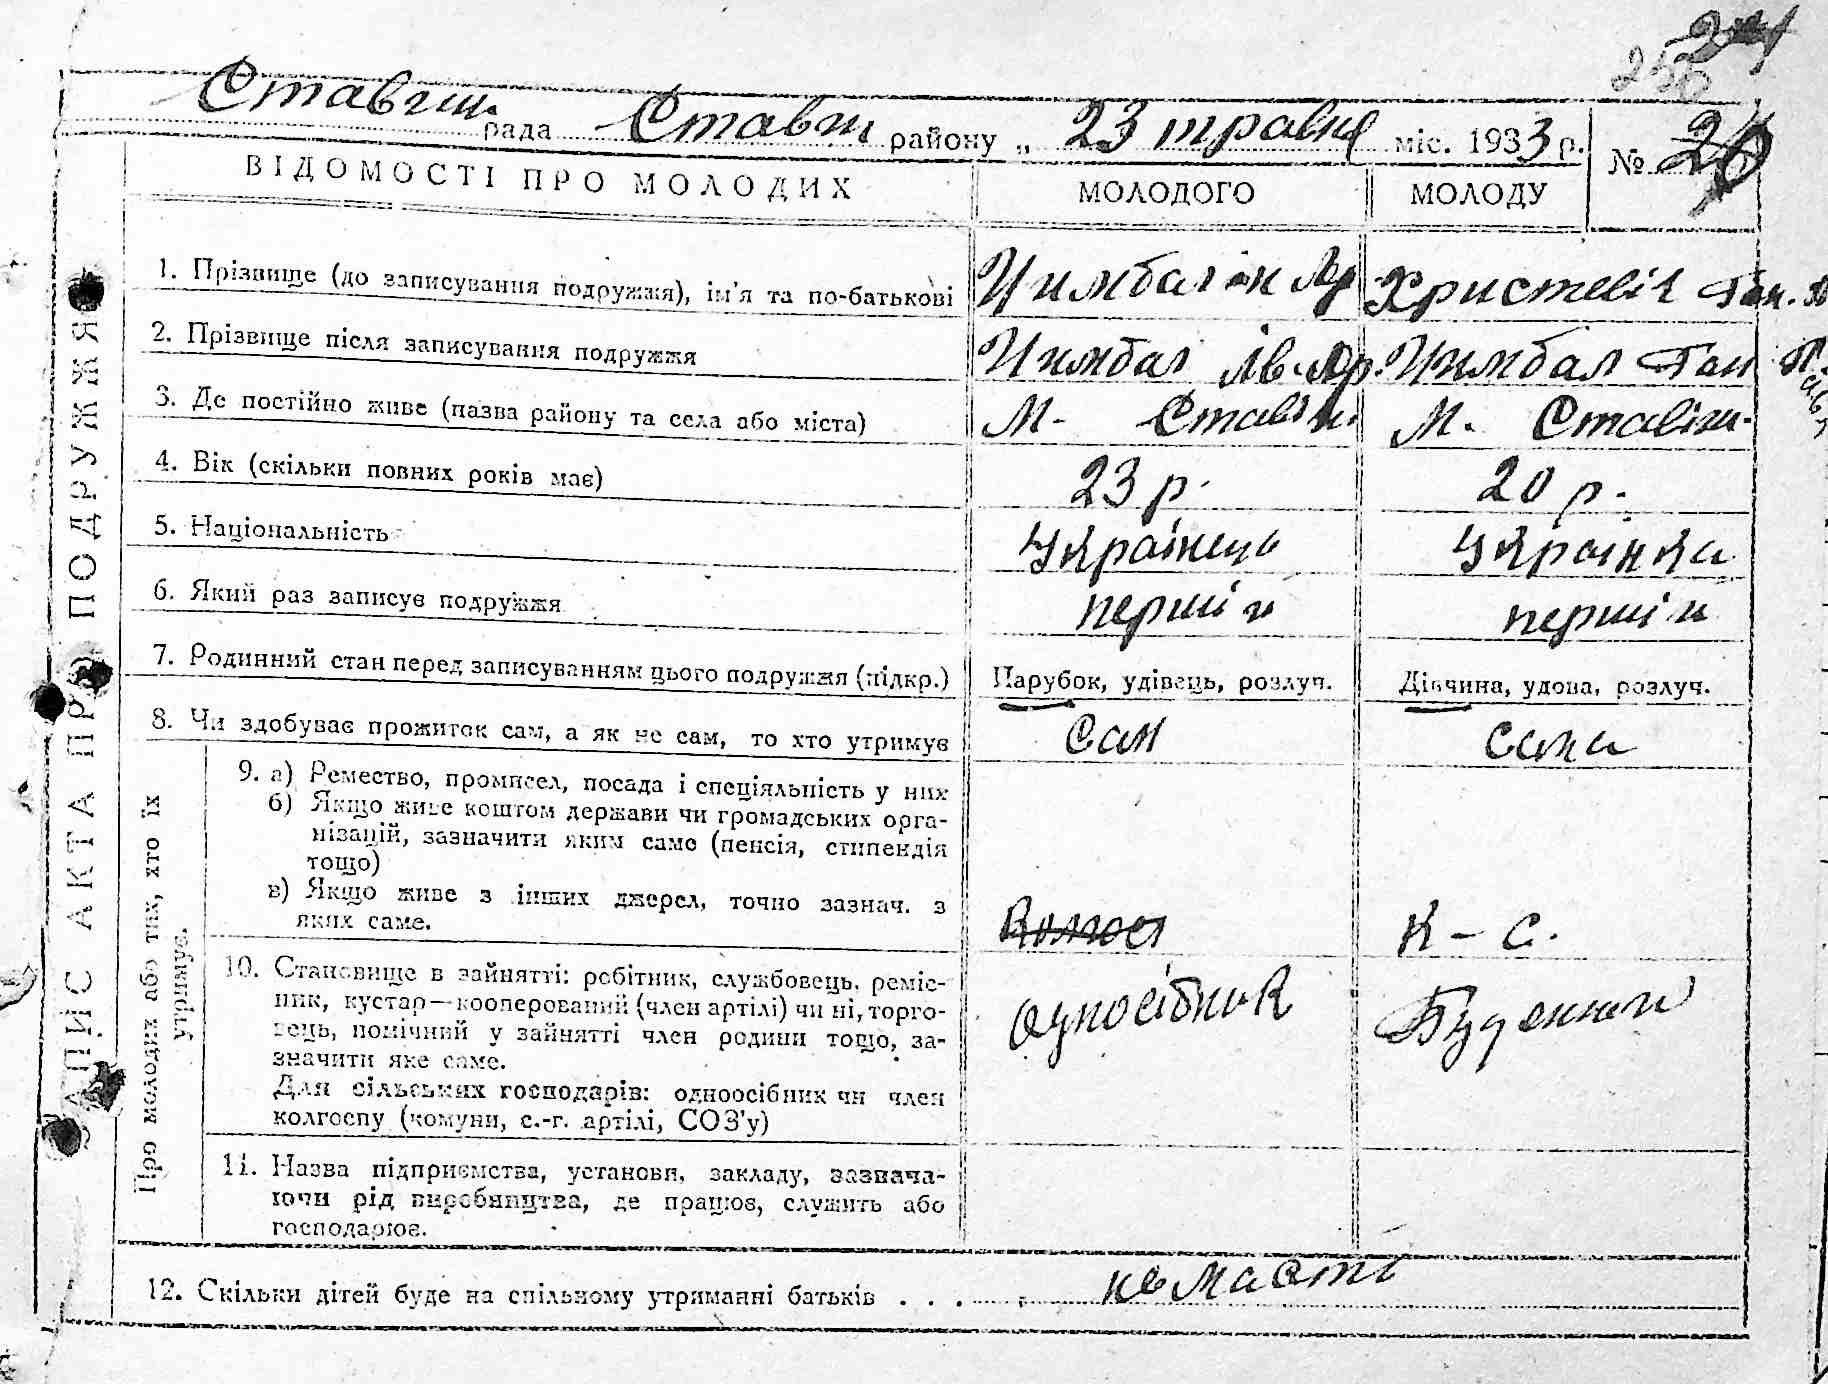 24
256
Ставищ. рада Ставищ району „ 23 травня міс. 1933 р. №
ВІДОМОСТІ ПРО МОЛОДИХ
МОЛОДОГО
МОЛОДУ
ЗАПИС АКТА ПРО ПОДРУЖЖЯ
1. Прізвище (до записування подружжя), ім'я та по-батькові
Христевіч Ган.
2. Прізвище після записування подружжя
Цимбал Ів. Яр.
Цимбал Ган П.
3. Де постійно живе (назва району та села або міста)
М. Ставищ.
М. Ставищ.
4. Вік (скільки повних років має)
23 р.
20 р.
5. Національність
Українець
Українка
6. Який раз записує подружжя
перший
перший
7. Родинний стан перед записуванням цього подружжя (підкр.)
Парубок, удівець, розлуч.
Дівчина, удова, розлуч.
8. Чи здобуває прожиток сам, а як не сам, то хто утримує
Сам
Сама
Про молодих або тих, хто їх утримує.
9. а) Ремество, промисел, посада і спеціяльність у них
б) Якщо живе коштом держави чи громадських орга-
нізацій, зазначити яким саме (пенсія, стипендія
тощо)
в) Якщо живе з інших джерел, точно зазнач. з
яких саме.
Колгосп
К – с.
10. Становище в зайнятті: робітник, службовець, реміс-
ник, кустар—кооперований (член артілі) чи ні, торго-
вець, помічний у зайнятті член родини тощо, за-
значити яке саме.
Для сільських господарів: одноосібник чи член
колгоспу (комуни, с.-г. артілі, СОЗ'у)
Одноосібник
Буденого
11. Назва підприємства, установи, закладу, зазнача-
ючи рід виробництва, де працює, служить або
господарює.
12. Скільки дітей буде на спільному утриманні батьків . . .